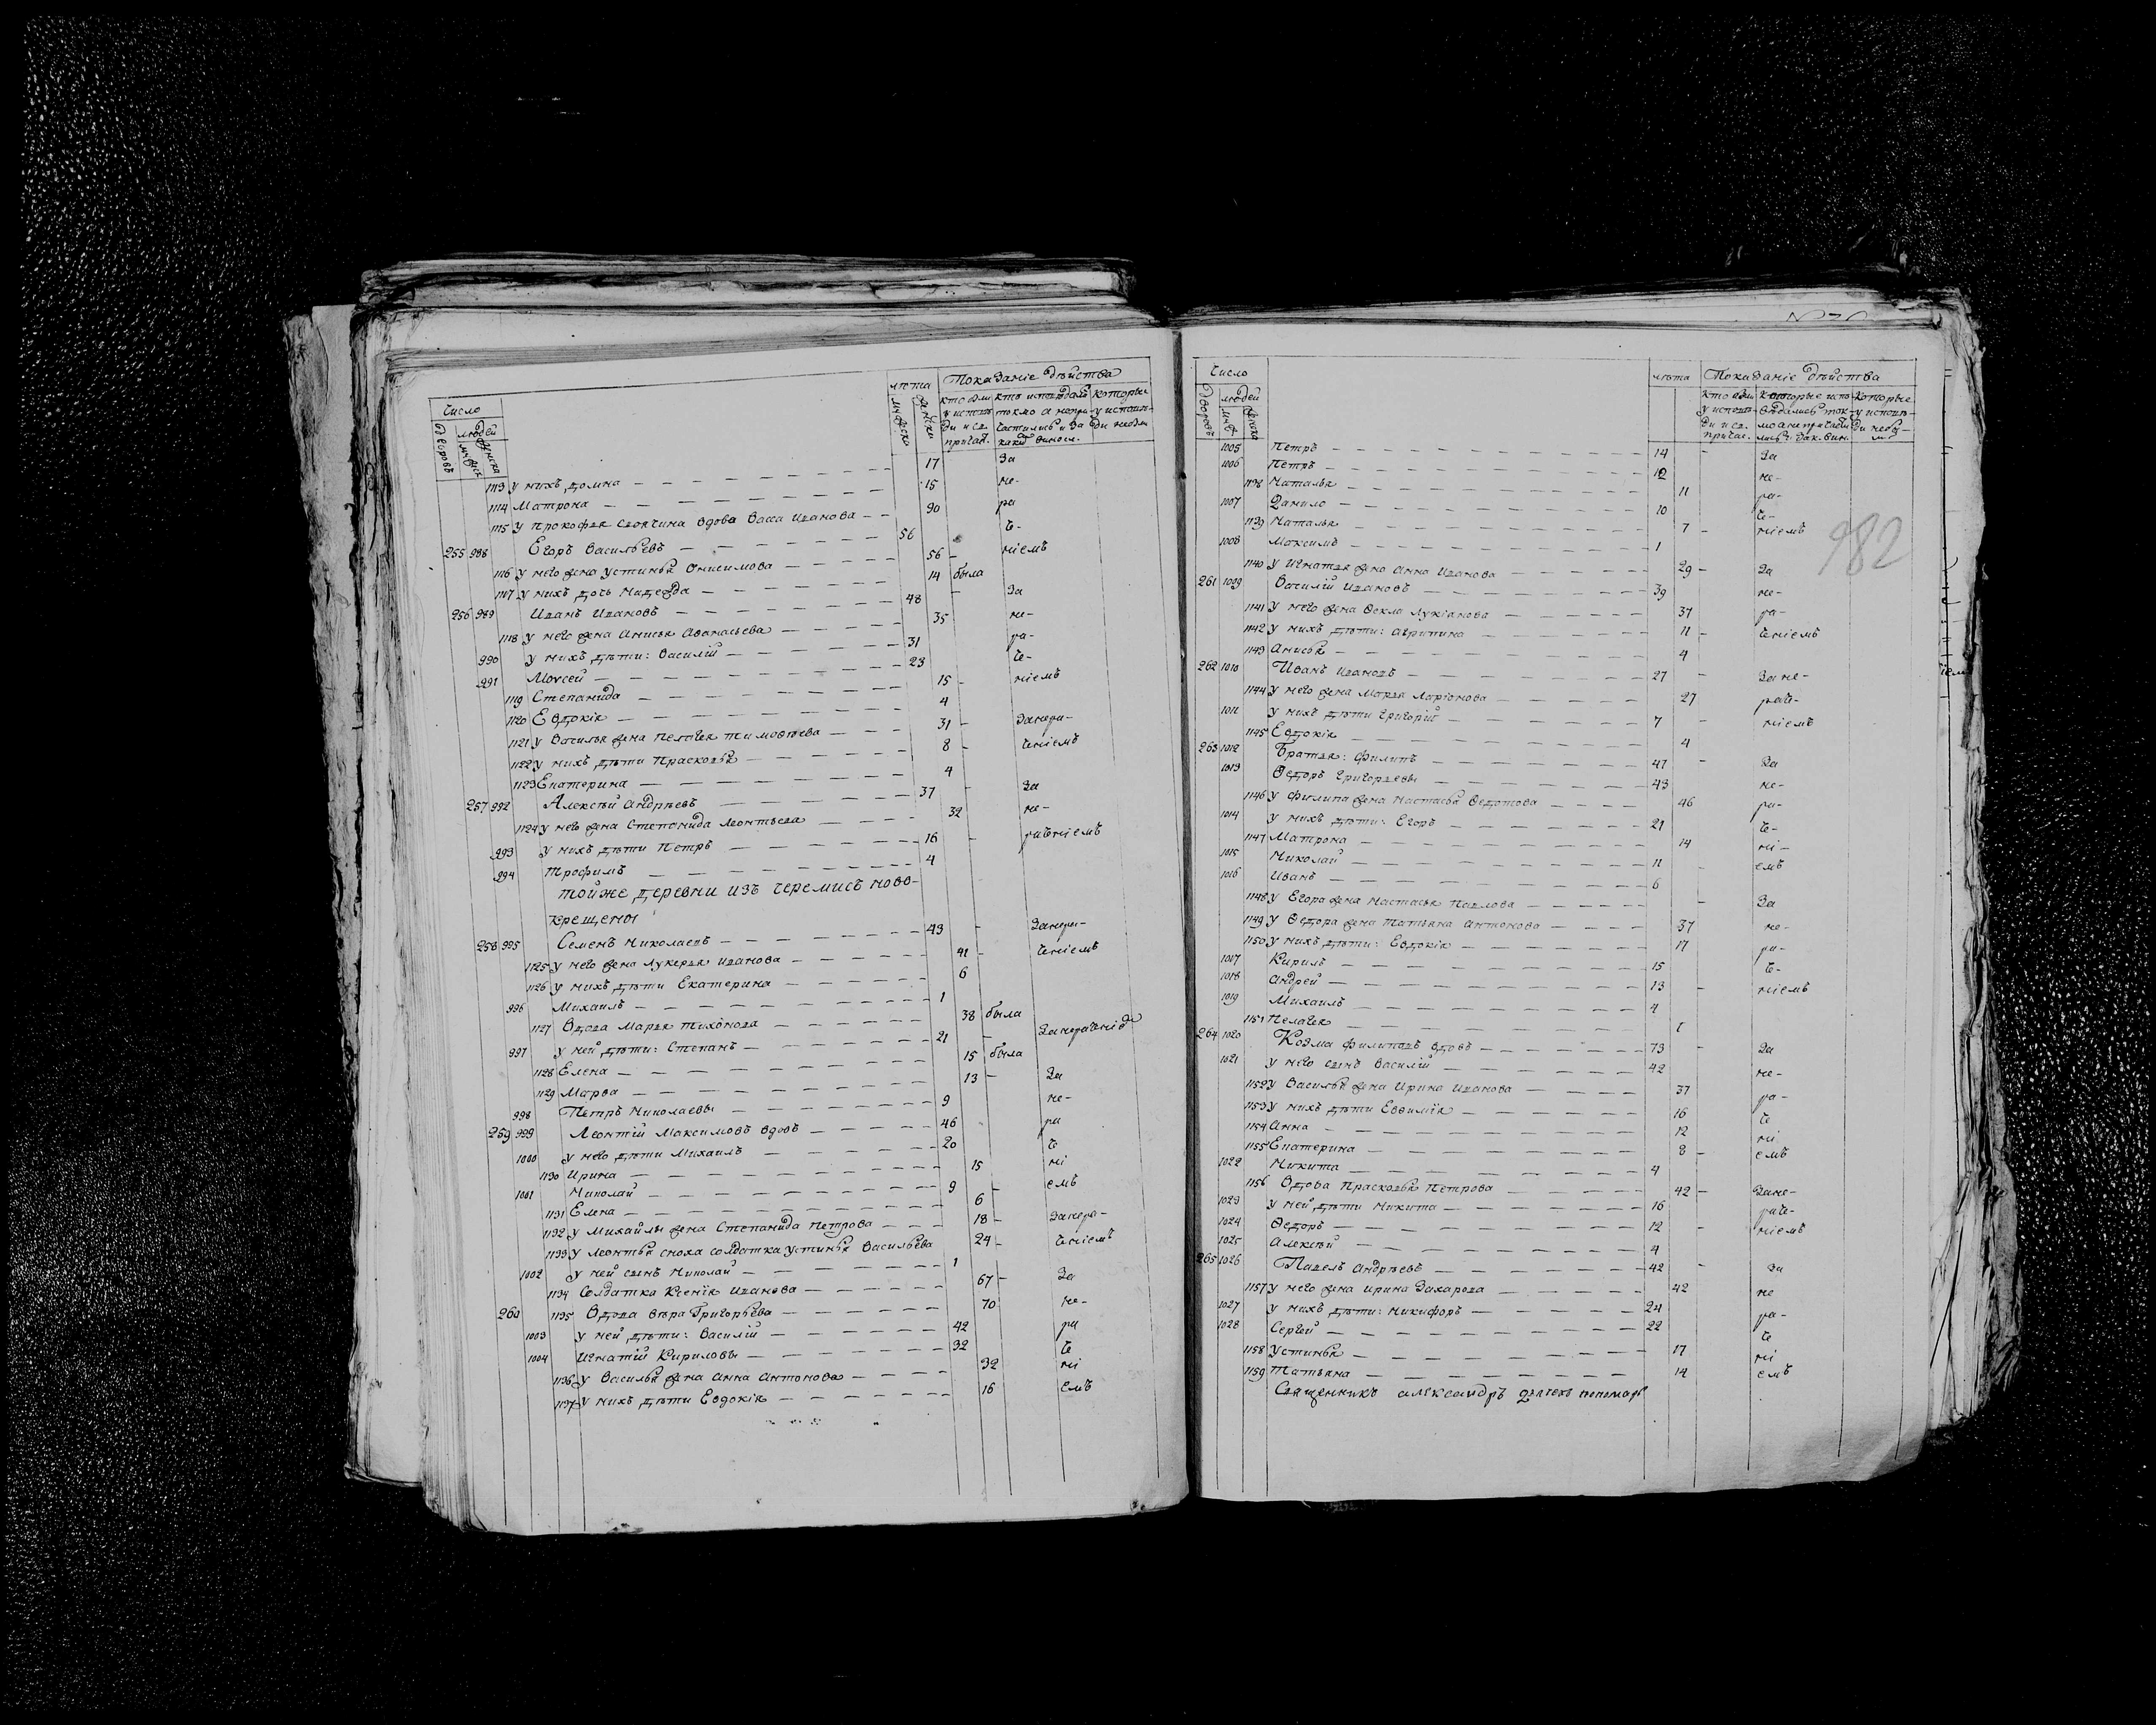 Число
лѣта Показаніе дѣйства
дворовъ людей
муж. женска
мужеска женска
кто были кто исповѣдал. которые
у исповѣ- токмо а непри- у исповѣ-
ди и св. частились и за ди небы
причас. какив винос.
17 За
1113 у нихъ домна — 15 не-
1114 Матрона — 90 ра
1115 у Прокофья своячина вдова Васса Иванова — че-
255 988 Егоръ Васильевъ — 56 ніемъ
1116 у него жена Устинья Онисимова — 56 —
1117 у нихъ дочь Надежда — 14 была
256 989 Иванъ Ивановъ — 48 — За
1118 у него жена Анисья Афанасьева — 35 не-
990 у нихъ дѣти: Василій — 31 ра-
991 Моvсей — 23 че-
1119 Степанида — 15 — ніемъ
1120 Евдокія — 4
1121 у Василья жена Пелагея Тимофѣева — 31 — Занера-
1122 у нихъ дѣти Прасковья — 8 — ченіемъ
1123 Екатерина — 4
257 992 Алексѣй Андрѣевъ — 37 — За
1124 у него жена Степанида Леонтьева — 32 не-
993 у нихъ дѣти Петръ — 16 — раченіемъ
994 Трофимъ — 4
тойже деревни изъ черемисъ ново-
крещены
258 995 Семенъ Николаевъ — 43 — Занера-
1125 у него жена Лукерья Иванова — 41 — ченіемъ
1126 у нихъ дѣти Екатерина — 6
996 Михаилъ — 1
1127 Вдова Марья Тихонова — 38 была
997 у ней дѣти: Степанъ — 21 — Занераченіе
1128 Елена — 15 была
1129 Марфа — 13 — За
998 Петръ Николаевы — 9 не-
259 999 Леонтій Максимовъ вдовъ — 46 ра
1000 у него дѣти Михаилъ — 20 че
1130 Ирина — 15 ні
1001 Николай — 9 — емъ
1131 Елена — 6
1132 у Михайлы жена Степанида Петрова — 18 — Занера-
1133 у Леонтья сноха солдатка Устинья Васильева 24 — ченіемъ
1002 у ней сынъ Николай — 1
1134 Солдатка Ксенія Иванова — 67 — За
260 1135 Вдова Вѣра Григорьева — 70 не-
1003 у ней дѣти: Василій — 42 ра
1004 Игнатій Кириловы — 32 че
1136 у Василья жена Анна Антонова — 32 ні
1137 у нихъ дѣти Евдокія — 16 емъ
Число
лѣта Показаніе дѣйства
дворовъ людей
муж. женска
кто были которые испо- Которые
у исповѣ- вѣдались ток- у исповѣ-
ди и св. мо а непричасти ди небы-
причас. лись. зак. вин. ли
1005 Петръ — 14 — За
1006 Петръ — 12 не-
1138 Наталья — 11 ра-
1007 Данило — 10 че-
1139 Наталья — 7 — ніемъ
1008 Максимъ — 1
1140 у Игнатья жена Анна Иванова — 29 — За
261 1009 Василій Ивановъ — 39 не-
1141 у него жена Фекла Лукіанова — 37 ра-
1142 у нихъ дѣти: Агрипина — 11 — ченіемъ
1143 Анисья — 4
262 1010 Иванъ Ивановъ — 27 — Зане-
1144 у него жена Марья Ларіонова — 27 раче-
1011 у нихъ дѣти Григорій — 7 — ніемъ
1145 Евдокія — 4
263 1012 Братья: Филипъ — 47 — За
1013 Федоръ Григорьевы — 43 не-
1146 у Филипа жена Настасья Федотова — 46 ра-
1014 у нихъ дѣти: Егоръ — 21 че-
1147 Матрона — 14 ні-
1015 Николай — 11 — емъ
1016 Иванъ — 6
1148 у Егора жена Настасья Павлова — — За
1149 у Федора жена Татьяна Антонова — 37 не-
1150 у нихъ дѣти: Евдокія — 17 ра-
1017 Кирилъ — 15 че-
1018 Андрей — 13 — ніемъ
1019 Михаилъ — 4
1151 Пелагея — 1
264 1020 Козма Филиповъ вдовъ — 73 — За
1021 у него сынъ Василій — 42 не-
1152 у Василья жена Ирина Иванова — 37 ра-
1153 у нихъ дѣти Евфимія — 16 че
1154 Анна — 12 ні
1155 Екатерина — 8 — емъ
1022 Никита — 4
1156 Вдова Прасковья Петрова — 42 — Зане-
1023 у ней дѣти Никита — 16 раче-
1024 Федоръ — 12 — ніемъ
1025 Алексѣй — 4
265 1026 Павелъ Андрѣевъ — 42 — За
1157 у него жена Ирина Захарова — 42 не
1027 у нихъ дѣти: Никифоръ — 24 ра-
1028 Сергей — 22 че
1158 Устинья — 17 ні
1159 Татьяна — 14 емъ
Священникъ александръ пономарь
982